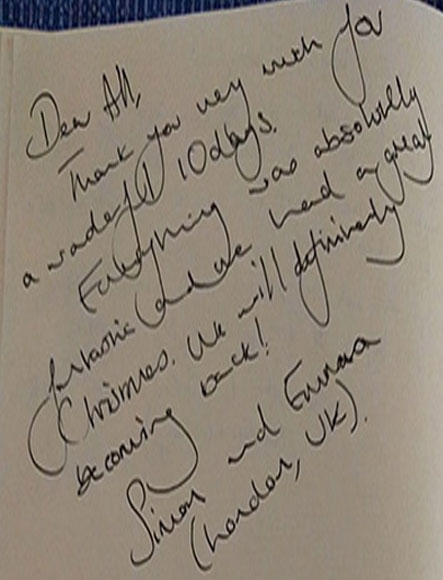 Dear All,
Thank you very much for
a wonderful 10 days.
Everything was absolutely
fantastic and we had a great
Christmas. We will definitely
be coming back!
Simon and Emma
(London, UK).